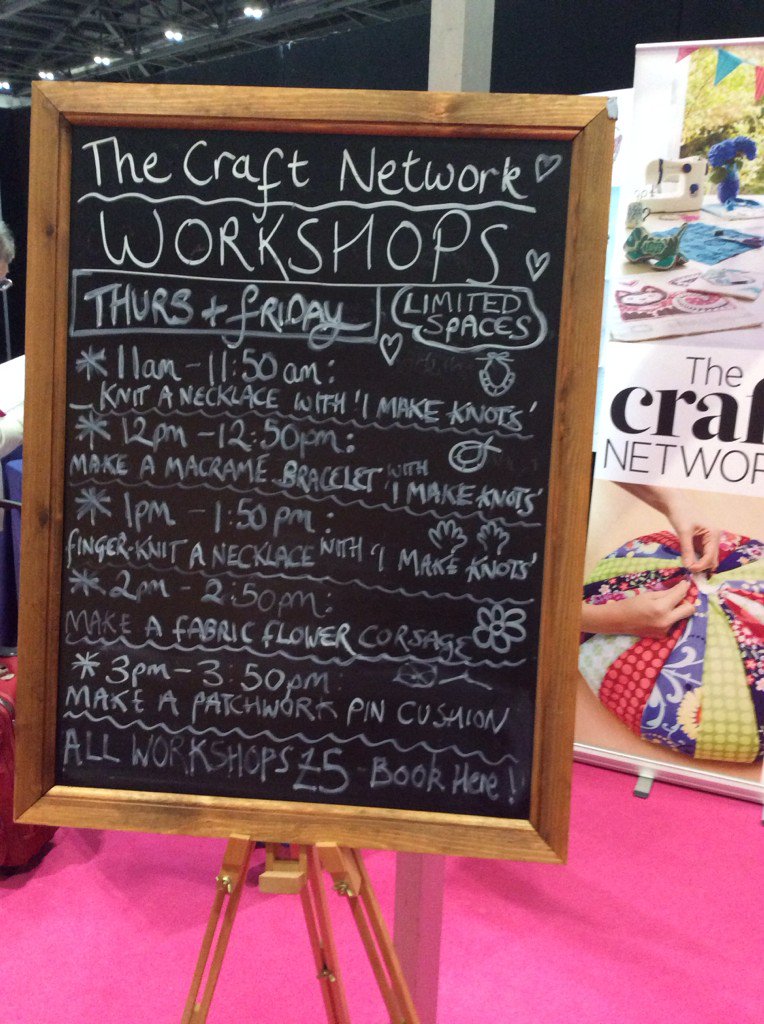 The Craft Network
WORKSHOPS
THURS + FRIDAY
LIMITED
SPACES
* 11am - 11:50am:
KNIT A NECKLACE WITH 'I MAKE KNOTS'
* 12pm - 12:50pm:
MAKE A MACRAMÉ BRACELET WITH 'I MAKE KNOTS'
* 1pm - 1:50pm:
FINGER-KNIT A NECKLACE WITH 'I MAKE KNOTS'
* 2pm - 2:50pm:
MAKE A FABRIC FLOWER CORSAGE
* 3pm - 3:50pm:
MAKE A PATCHWORK PIN CUSHION
ALL WORKSHOPS £5 - BOOK HERE!
The
craf
NETWOR